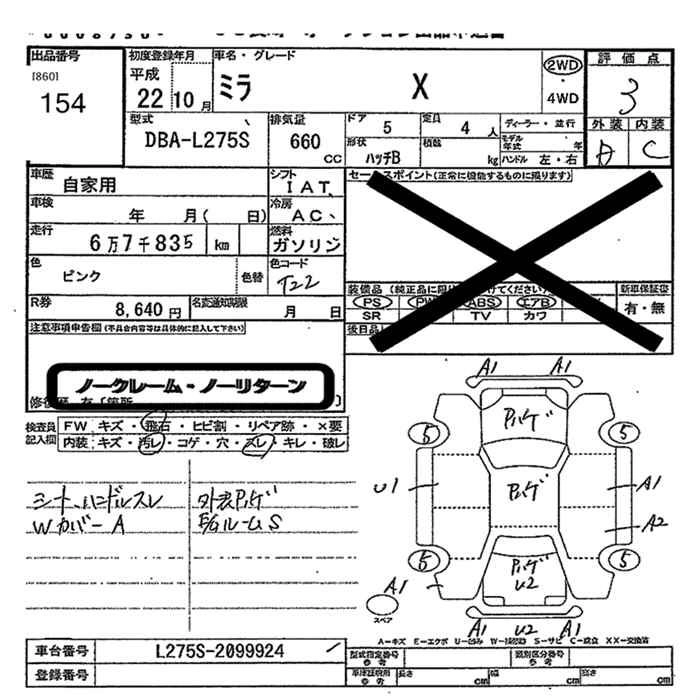 出品番号
[860]
154
初度登録年月
平成
22 10月
車名・グレード
ミラ X
2WD
4WD
評価点
3
外装 内装
A C
型式
DBA-L275S
排気量
660
CC
ドア 5
定員 4人
ディーラー・並行
形状
ハッチB
積数 kg
モデル年式 年
ハンドル 左・右
車歴
自家用
シフト
IAT
車検
年 月( 日)
冷房
AC
走行
6万7千835 km
燃料
ガソリン
色
ピンク
色替
色コード
T22
R券
8,640円
名変通知期限
月 日
セールスポイント(正常に機能するものに限ります)
新車保証書
有・無
PS ABS エアB
SR TV カワ
後日品
注意事項申告欄(不具合内容等は具体的に記入して下さい)
ノークレーム・ノーリターン
検査員記入欄
FW キズ・飛石・ヒビ割・リペア跡・×要
内装 キズ・汚レ・コゲ・穴・スレ・キレ・破レ
シート、ハンドルスレ
Wカバー A
外装
ルームS
A1 A1
5 5
U1
A1
A2
5 5
U2
A1
スペア
A1 U2 A1
A-キズ E-エクボ U-凹み W-補修跡 S-サビ C-腐食 XX-交換済
車台番号 L275S-2099924
登録番号
型式指定番号 参考
類別区分番号 参考
車庫証明用 参考
長さ cm
幅 cm
高さ cm